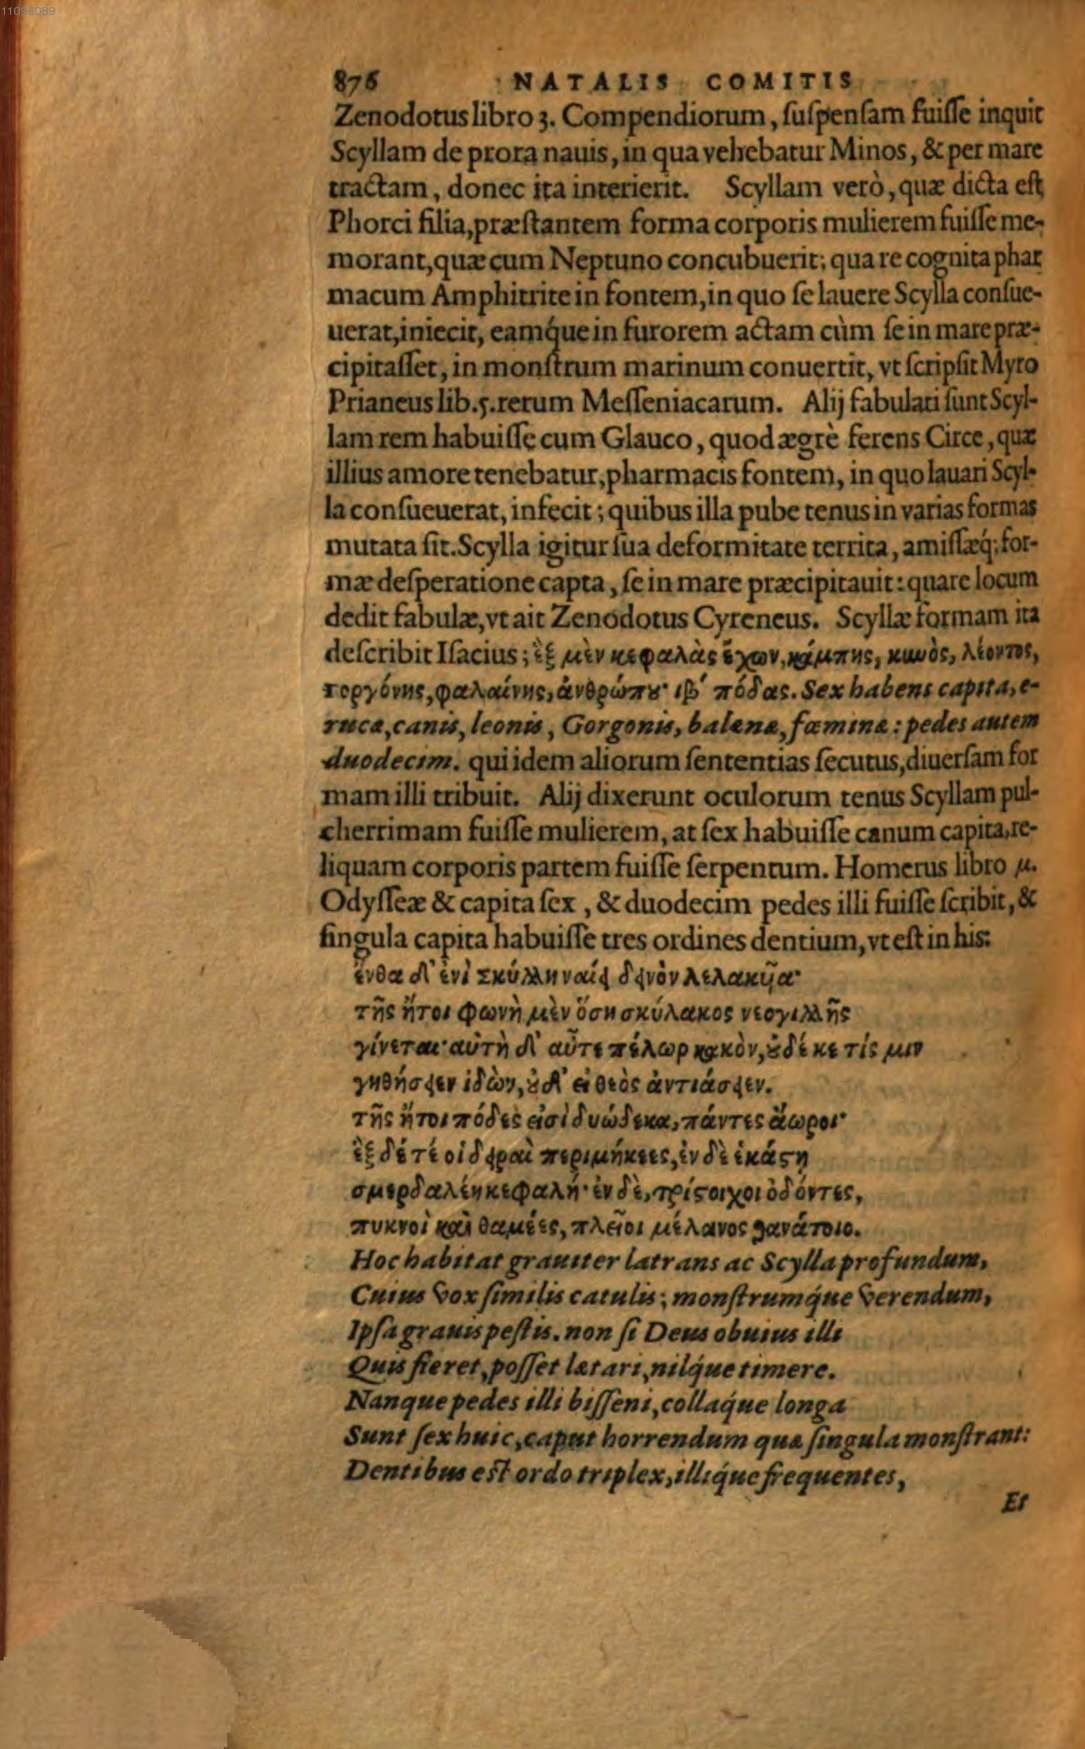 11098089
876 NATALIS COMITIS
Zenodotus libro 3. Compendiorum, ſuſpenſam fuiſſe inquit
Scyllam de prora nauis, in qua vehebatur Minos, & per mare
tractam, donec ita interierit. Scyllam verò, quæ dicta eſt
Phorci filia, præſtantem forma corporis mulierem fuiſſe me-
morant, quæ cum Neptuno concubuerit; qua re cognita phar
macum Amphitrite in fontem, in quo ſe lauere Scylla conſue-
uerat, iniecit, eamq́ue in furorem actam cùm ſe in mare præ-
cipitaſſet, in monſtrum marinum conuertit, vt ſcripſit Myro
Prianeus lib. 5. rerum Meſſeniacarum. Alij fabulati ſunt Scyl-
lam rem habuiſſe cum Glauco, quod ægrè ferens Circe, quæ
illius amore tenebatur, pharmacis fontem, in quo lauari Scyl-
la conſueuerat, infecit; quibus illa pube tenus in varias formas
mutata ſit. Scylla igitur ſua deformitate territa, amiſſæq́; for-
mæ deſperatione capta, ſe in mare præcipitauit: quare locum
dedit fabulæ, vt ait Zenodotus Cyreneus. Scyllæ formam ita
deſcribit Iſacius; ἓξ μὲν κεφαλὰς ἔχων, κάμπης, κυνὸς, λέοντος,
γοργόνης, φαλαίνης, ἀνθρώπου· ιβ´ πόδας. Sex habens capita, e-
rucæ, canis, leonis, Gorgonis, balenæ, fœminæ: pedes autem
duodecim. qui idem aliorum ſententias ſecutus, diuerſam for
mam illi tribuit. Alij dixerunt oculorum tenus Scyllam pul-
cherrimam fuiſſe mulierem, at ſex habuiſſe canum capita, re-
liquam corporis partem fuiſſe ſerpentum. Homerus libro μ.
Odyſſeæ & capita ſex, & duodecim pedes illi fuiſſe ſcribit, &
ſingula capita habuiſſe tres ordines dentium, vt eſt in his:
ἔνθα δ' ἐνὶ σκύλλη ναίει δεινὸν λελακυῖα·
τῆς ἤτοι φωνὴ μὲν ὅση σκύλακος νεογιλλῆς
γίνεται· αὐτὴ δ' αὖτε πέλωρ κακὸν, οὐδέ κε τίς μιν
γηθήσειεν ἰδὼν, οὐδ' εἰ θεὸς ἀντιάσειεν.
τῆς ἤτοι πόδες εἰσὶ δυώδεκα, πάντες ἄωροι·
ἓξ δέ τέ οἱ δειραὶ περιμήκεες, ἐν δὲ ἑκάστη
σμερδαλέη κεφαλή· ἐν δὲ, τρίστοιχοι ὀδόντες,
πυκνοὶ καὶ θαμέες, πλεῖοι μέλανος θανάτοιο.
Hoc habitat grauiter latrans ac Scylla profundum,
Cuius vox ſimilis catulis; monſtrumq́ue verendum,
Ipſa grauis peſtis. non ſi Deus obuius illi
Quis fieret, poſſet lætari, nilq́ue timere.
Nanque pedes illi biſſeni, collaq́ue longa
Sunt ſex huic, caput horrendum quæ ſingula monſtrant:
Dentibus eſt ordo triplex, illiq́ue frequentes,
Et